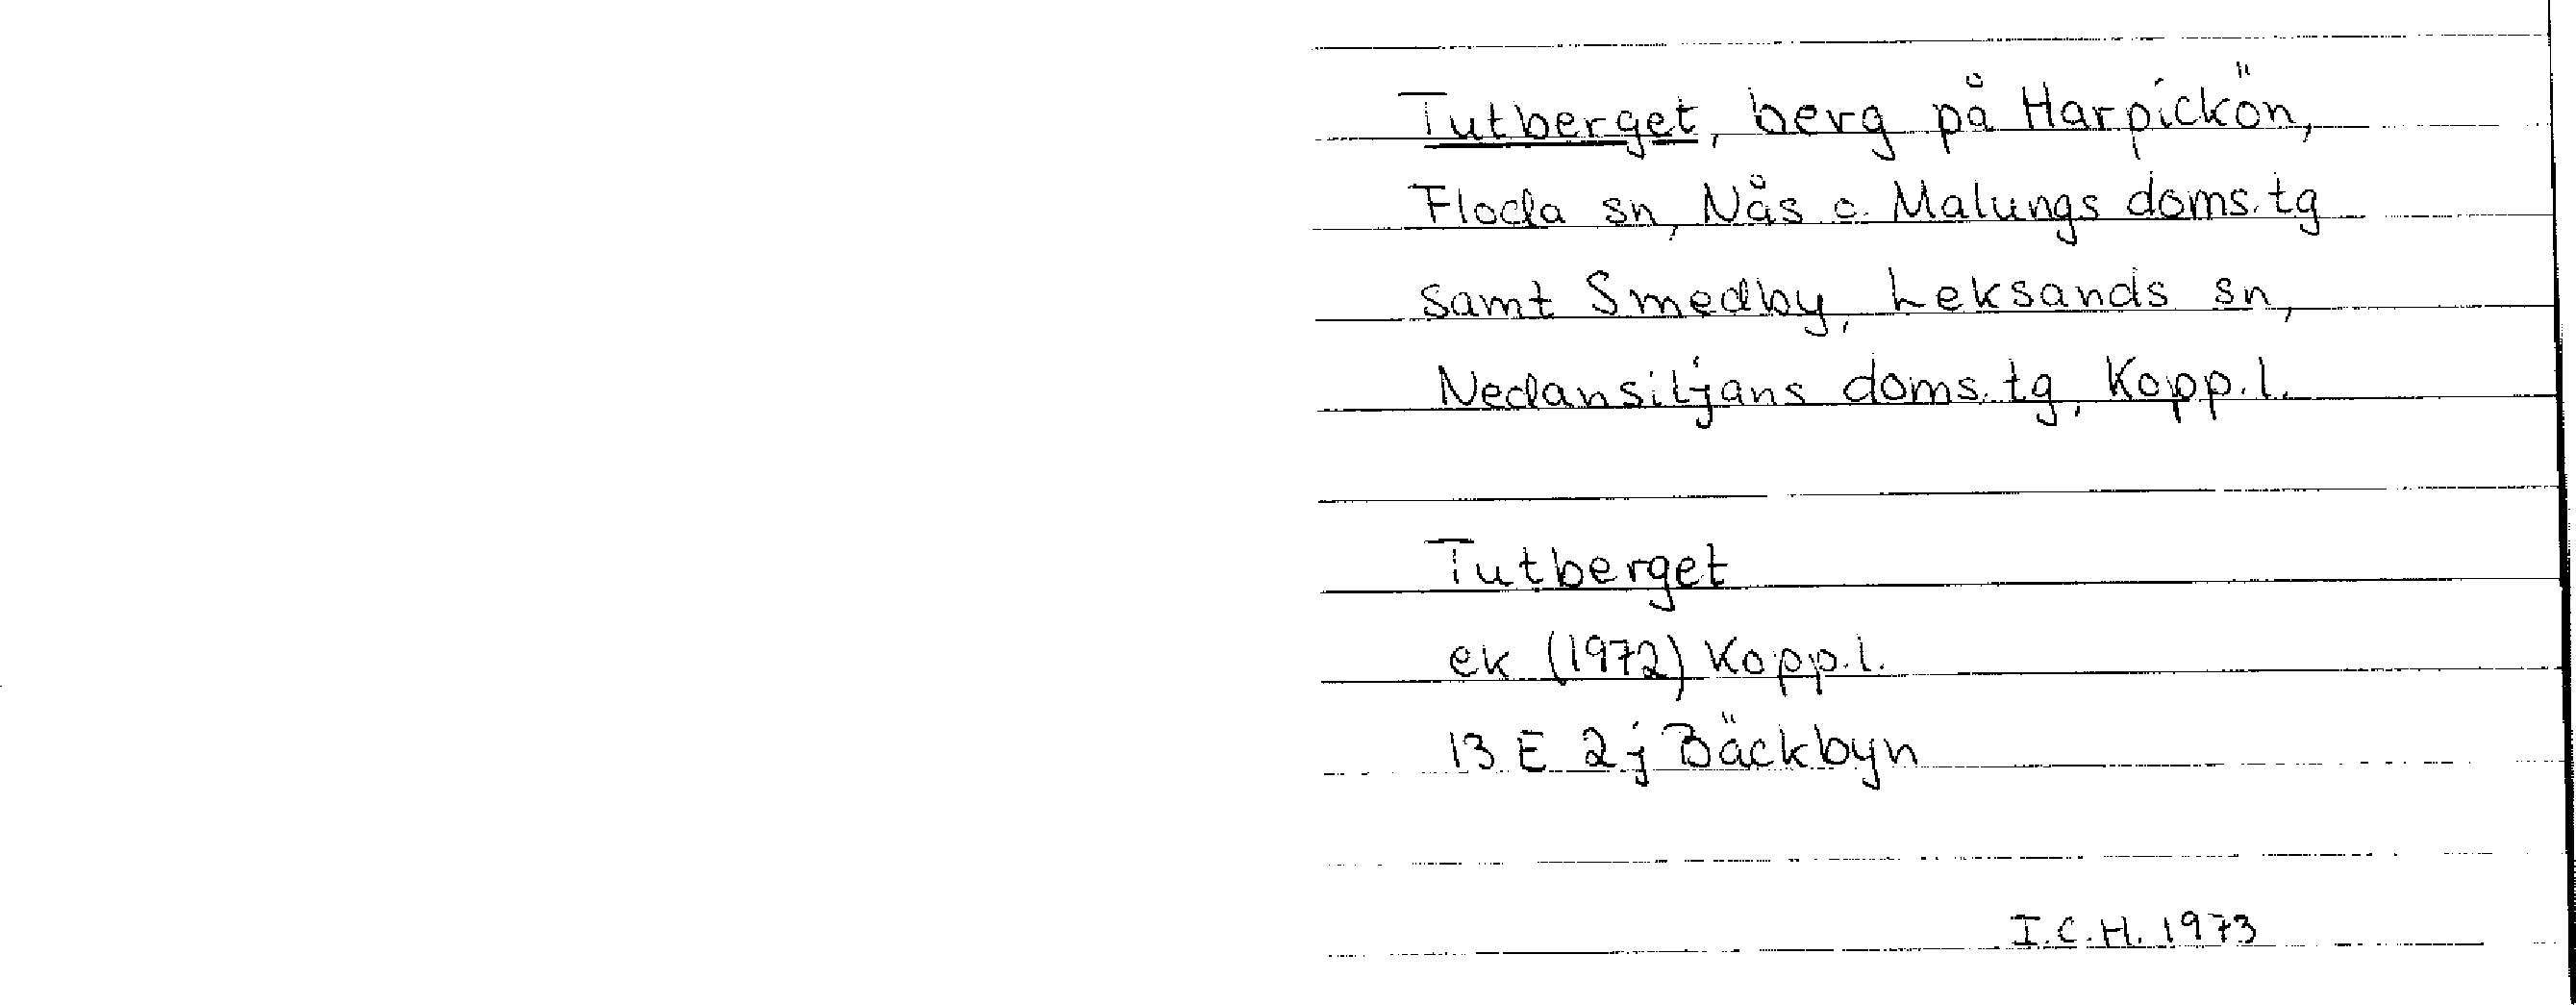 Tutberget, berg på Harpickön,
Floda sn, Nås o. Malungs doms.tg
samt Smedby, Leksands sn,
Nedansiljans doms.tg, Kopp.l.
Tutberget
ek (1972) Kopp.l.
13 E 2j Bäckbyn
I.C.H. 1973